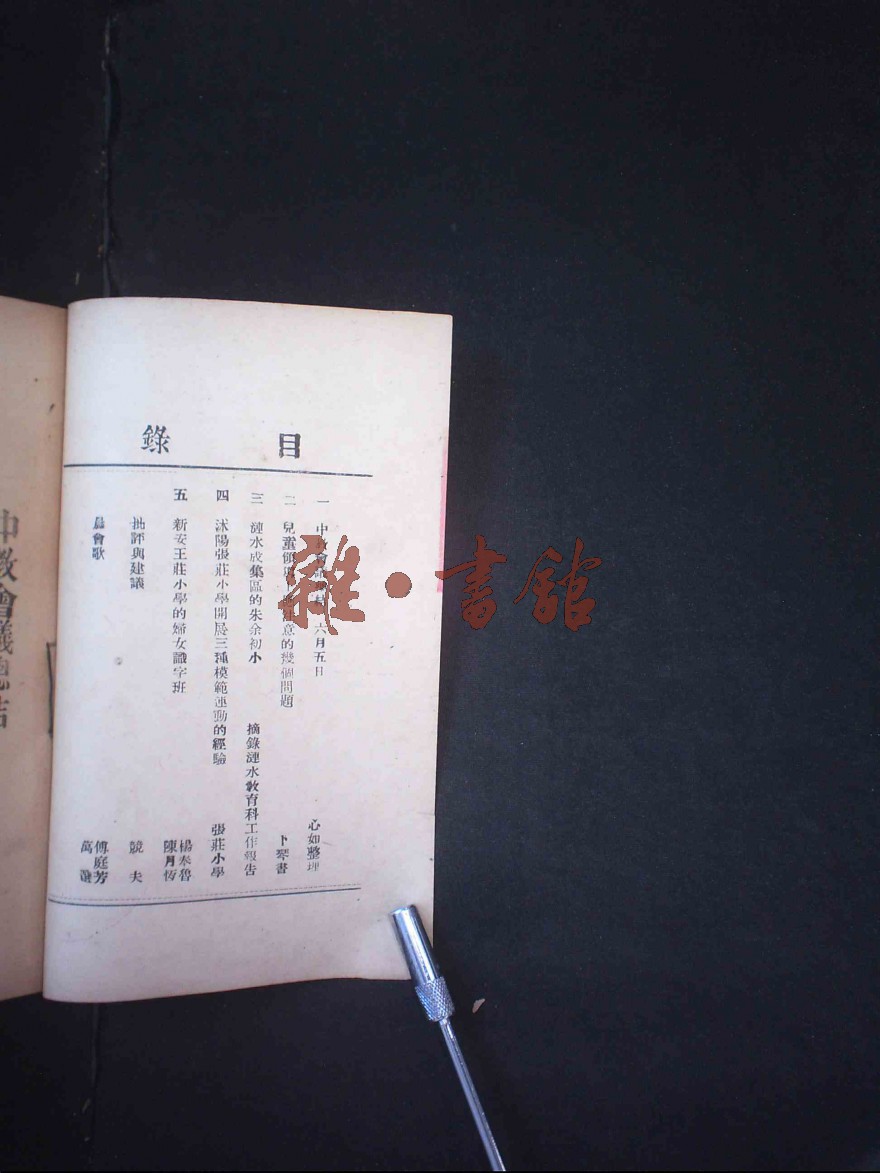 目錄
一 中教會 六月五日 心如整理
二 兒童 注意的幾個問題 卜琴書
三 漣水成集區的朱余初小 摘錄漣水教育科工作報告
四 沭陽張莊小學開展三種模範運動的經驗 張莊小學
五 新安王莊小學的婦女識字班 楊本魯 陳月恆
批評與建議 競夫
晨會歌 傅庭芳 萬
中教會議總結
雜·書館